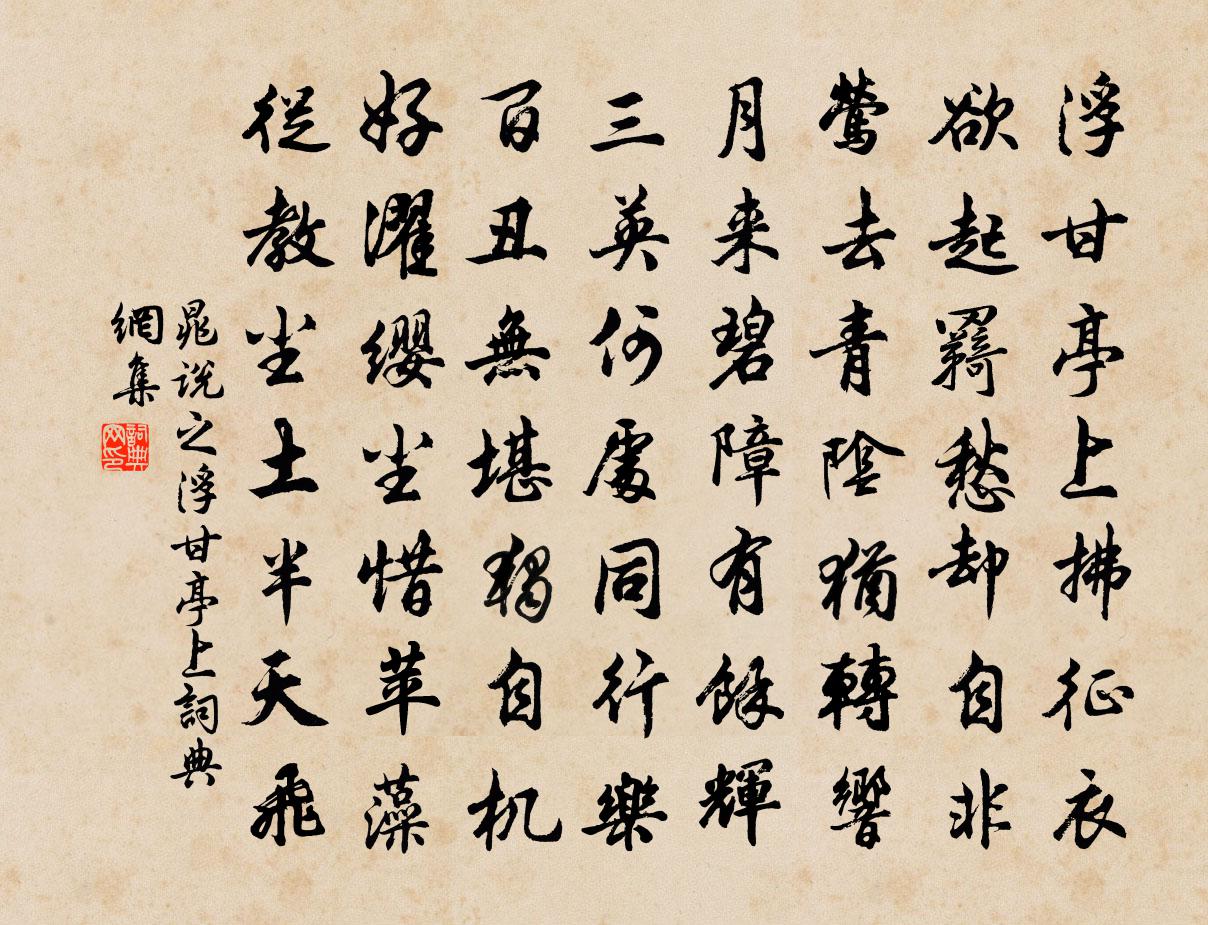 浮甘亭上拂征衣
欲起羇愁却自非
鶯去青陰猶轉響
月来碧障有餘輝
三英何處同行樂
百丑無堪獨自机
好濯纓尘惜苹藻
從教尘土半天飛
晁説之浮甘亭上詞典
網集
詞典
网印